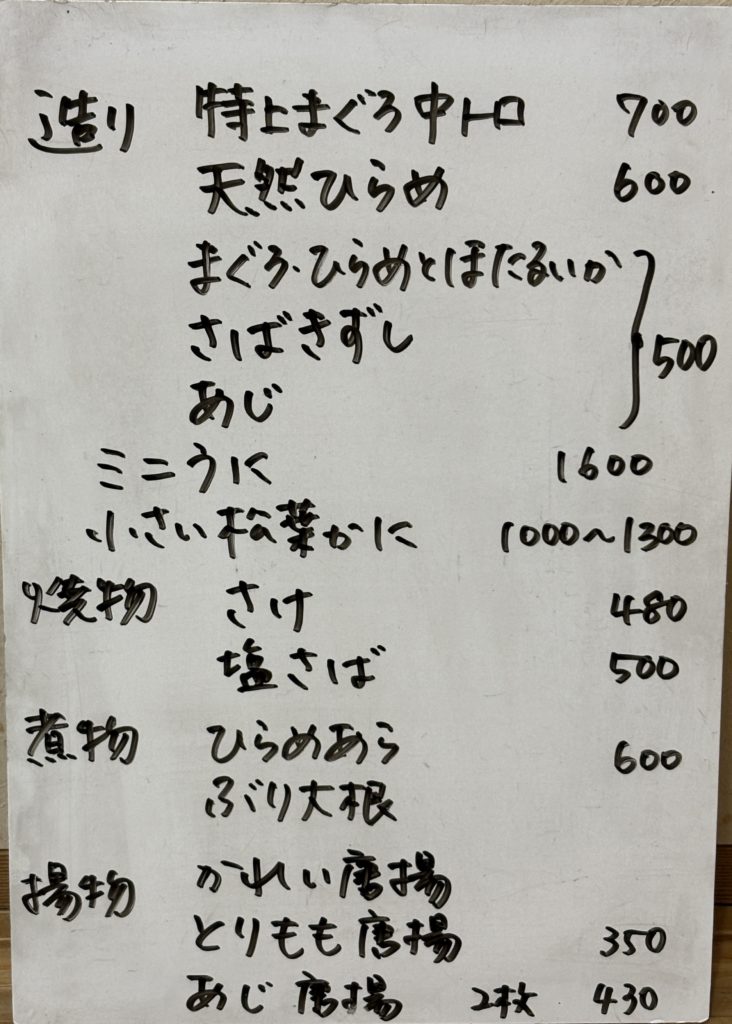 造り 特上まぐろ中トロ 700
天然ひらめ 600
まぐろ・ひらめとほたるいか
さばきずし 500
あじ
ミニうに 1600
小さい松葉かに 1000〜1300
焼物 さけ 480
塩さば 500
煮物 ひらめあら 600
ぶり大根
揚物 かれい唐揚
とりもも唐揚 350
あじ唐揚 2枚 430